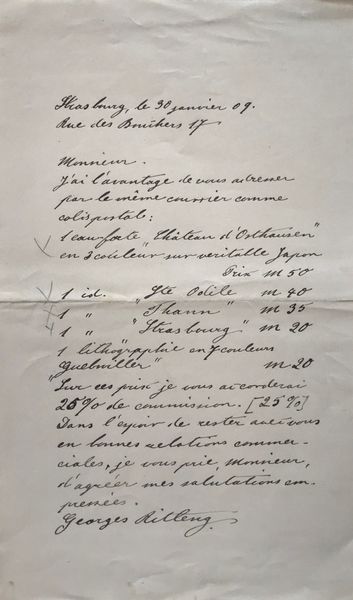 Strasbourg, le 30 janvier 09.
Rue des Bouchers 17
Monsieur.
J'ai l'avantage de vous adresser
par le même courrier comme
colis postale:
1 eau-forte "Château d'Osthausen"
en 3 couleur sur véritable Japon
Prix M 50
1 id. "Ste Odile" M 40
1 " "Thann" M 35
1 " "Strasbourg" M 20
1 lithographie en 7 couleurs
"Guebwiller" M 20
Sur ces prix je vous accorderai
25% de commission. [25%]
Dans l'espoir de rester avec vous
en bonnes relations commer-
ciales, je vous prie, Monsieur,
d'agréer mes salutations em-
pressées.
Georges Ritleng